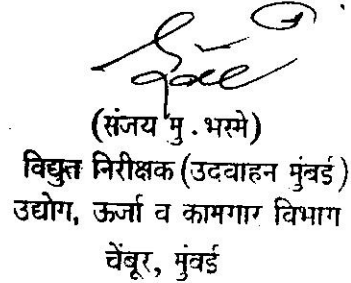 (संजय मु. भस्मे)
विद्युत निरीक्षक (उदवाहन मुंबई)
उद्योग, ऊर्जा व कामगार विभाग
चेंबूर, मुंबई